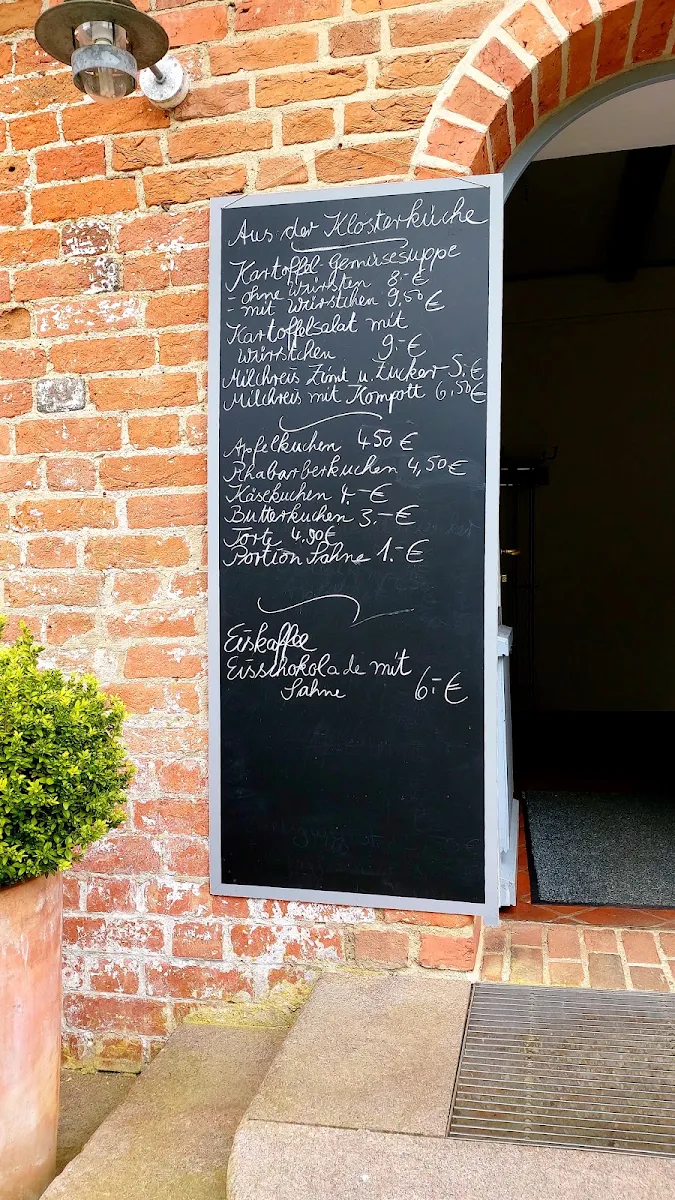 Aus der Klosterküche
Kartoffel-Gemüsesuppe
- ohne Würstchen 8.-€
- mit Würstchen 9,50 €
Kartoffelsalat mit
Würstchen 9.-€
Milchreis Zimt u. Zucker 5.-€
Milchreis mit Kompott 6,50€
Apfelkuchen 4,50 €
Rhabarberkuchen 4,50€
Käsekuchen 4.-€
Butterkuchen 3.-€
Torte 4,90€
Portion Sahne 1.-€
Eiskaffee
Eisschokolade mit
Sahne 6.-€